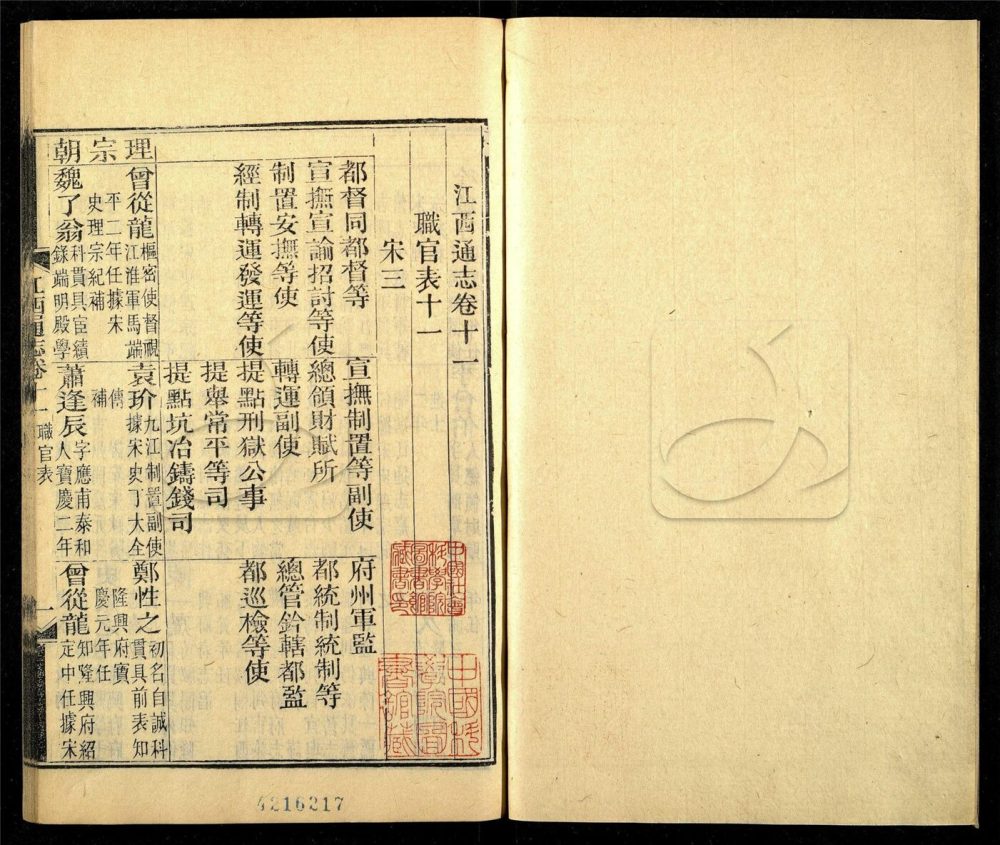 江西通志卷十一
職官表十一
宋三
都督同都督等
宣撫宣諭招討等使
制置安撫等使
經制轉運發運等使
宣撫制置等副使
總領財賦所
轉運副使
提點刑獄公事
提舉常平等司
提點坑冶鑄錢司
府州軍監
都統制統制等
總管鈐轄都監
都巡檢等使
理宗朝
曾從龍 樞密使督視
江淮軍馬端
平二年任據宋
史理宗紀補
袁玠 九江制置副使
據宋史丁大全
傳
補
鄭性之 初名自誠科
貫具前表知
隆興府寶
慶元年任
魏了翁 科貫具宦績
錄端明殿學
蕭逢辰 字應甫泰和
人寶慶二年
曾從龍 知隆興府紹
定中任據宋
江西通志卷十一 職官表 一
中國社會
科學院
圖書館
藏書印
中國科
學院圖
書館藏
4216217